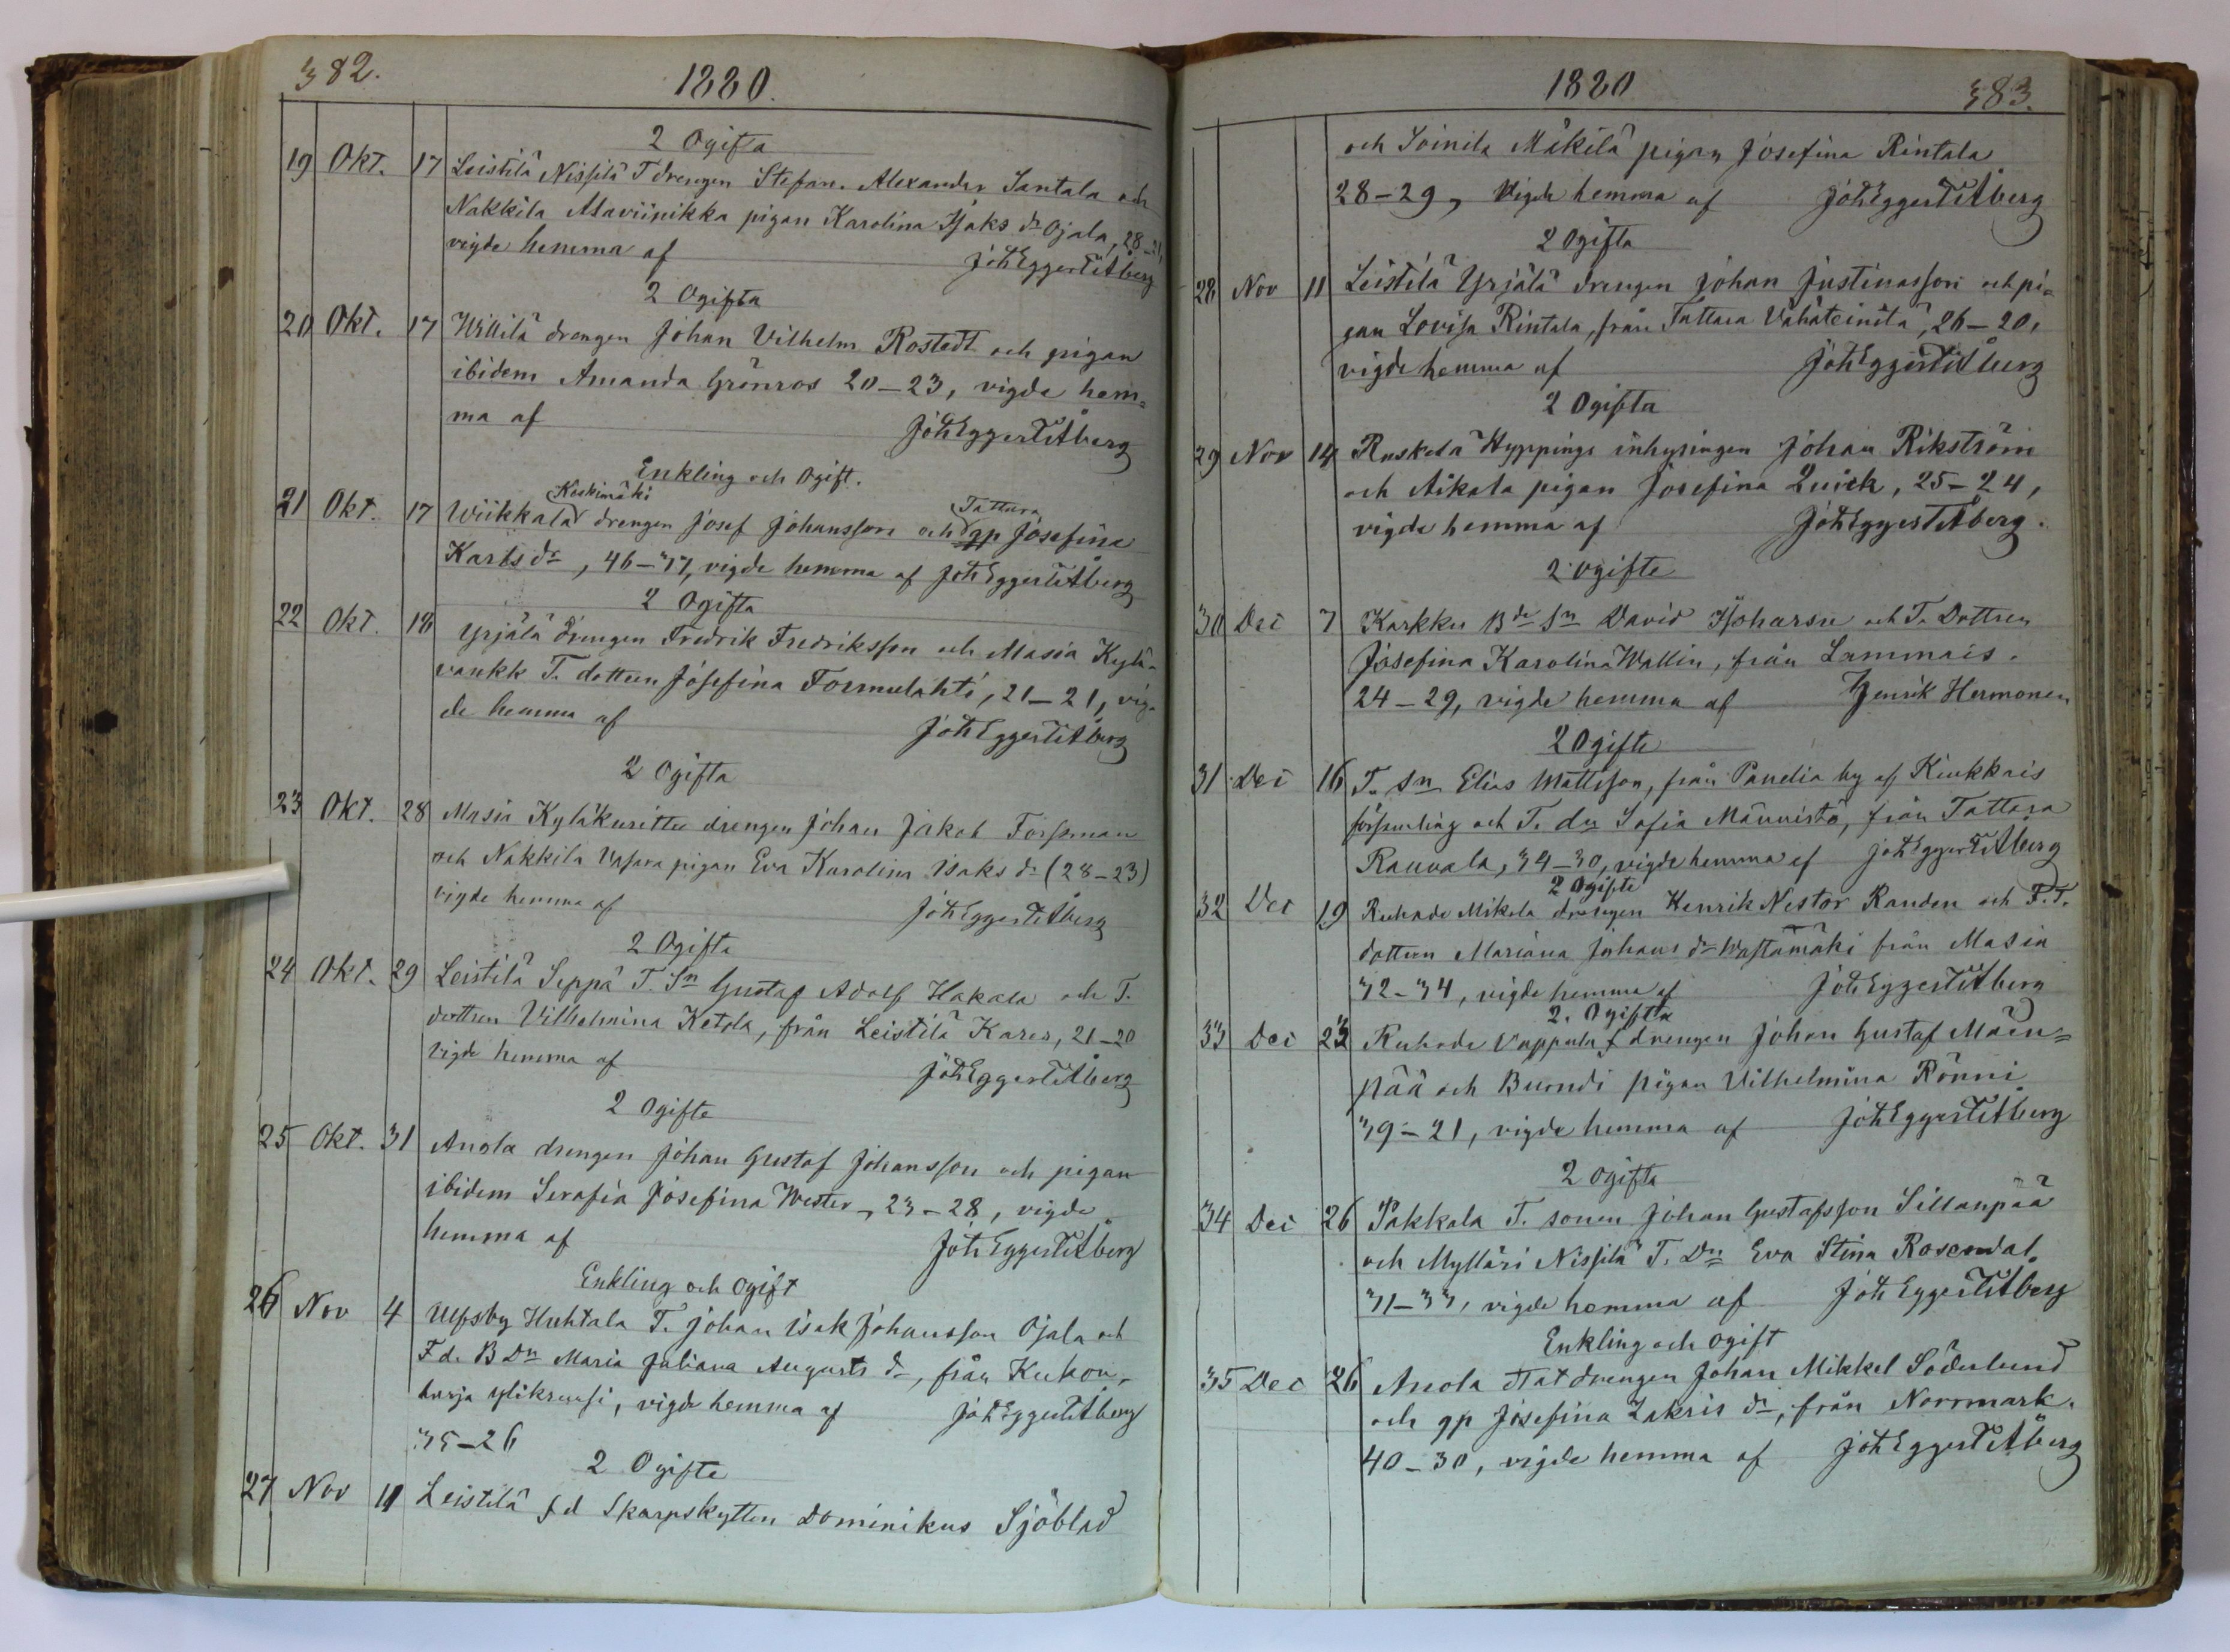 382.
1880.
2 Ogifta
19 Okt. 17 Leistilä Nissilä T drengen Stefan Alexander Santala och
Nakkila Maviinikka pigan Karolina Isaks dr Ojala, 28–21,
vigde hemma af Joh Eggert Tit Åberg
2 Ogifta
20 Okt. 17 Willilä drengen Johan Vilhelm Rostedt och pigan
ibidem Amanda Grönros 20–23, vigde hem=
ma af Joh Eggert Tit Åberg
Enkling och Ogift.
Keskimäki Tattara
21 Okt. 17 Wiikkala drengen Josef Johansson och gp Josefina
Karls dr, 46–37, vigde hemma af Joh Eggert Tit Åberg
2 Ogifta
22 Okt. 18 Yrjälä drengen Fredrik Fredriksson och Masia Kylä=
vankk T. dottren Josefina Formulahti, 21–21, vig=
de hemma af Joh Eggert Tit Åberg
2 Ogifta
23 Okt. 28 Masia Kyläkurittu drengen Johan Jakob Forssman
och Nakkila pigan Eva Karolina Isaks dr (28–23)
vigde hemma af Joh Eggert Tit Åberg
2 Ogifta
24 Okt. 29 Leistilä Seppä T. Sn Gustaf Adolf Hakala och T.
dottren Vilhelmina Ketola, från Leistilä Kares, 21–20
vigde hemma af Joh Eggert Tit Åberg
2 Ogifta
25 Okt. 31 Anola drengen Johan Gustaf Johansson och pigan
ibidem Serafia Josefina Wester, 23–28, vigde
hemma af Joh Eggert Tit Åberg
Enkling och Ogift
26 Nov 4 Ulfsby Huhtala T. Johan Isak Johansson Ojala och
F d. B Dn Maria Juliana Augusts dr, från Kukon=
harja Ylikruusi, vigde hemma af Joh Eggert Tit Åberg
35–26
2 Ogifta
27 Nov 11 Leistilä f d Skarpskytten Dominikus Sjöblad
1880
383.
och Soinila Mäkilä pigan Josefina Rintala
28–29, vigde hemma af Joh Eggert Tit Åberg
2 Ogifta
28 Nov 11 Leistilä Yrjälä drengen Johan Justinasson och pi=
gan Lovisa Rintala, från Tattara Vähäteinilä, 26–20,
vigde hemma af Joh Eggert Tit Åberg
2 Ogifta
29 Nov 14 Ruskela Hyppings inhysingen Johan Rikström
och Aikala pigan Josefina Quick, 25–24,
vigde hemma af Joh Eggert Tit Åberg.
2 Ogifte
30 Dec 7 Karkku Bde Sn David Johansn och T. Dottren
Josefina Karolina Wallin, från Lammais.
24–29, vigde hemma af Henrik Hermonen
2 Ogifte
31 Dec 16 T. Sn Elias Mattsson, från Panelia by af Kiukkais
församling och T. dn Sofia Männistö, från Tattara
Rauvala, 34–30, vigde hemma af Joh Eggert Tit Åberg
2 Ogifte
32 Dec 19 Ruhade Mikola drengen Henrik Nestor Randen och F. T.
dottren Mariana Johans dr Wastamäki från Masia
32–34, vigde hemma af Joh Eggert Tit Åberg
2. Ogifta
33 Dec 23 Ruhade Vappula f drengen Johan Gustaf Mäen=
pää och Buondi pigan Vilhelmina Rönni
39–21, vigde hemma af Joh Eggert Tit Åberg
2 Ogifta
34 Dec 26 Pakkala T. sonen Johan Gustafsson Sillanpää
och Mylläri Nissilä T. Dn Eva Stina Rosendal
31–33, vigde hemma af Joh Eggert Tit Åberg
Enkling och ogift
35 Dec 26 Anola Statdrengen Johan Mikkel Söderlund
och gp Josefina Zakris dr, från Norrmark.
40–30, vigde hemma af Joh Eggert Tit Åberg